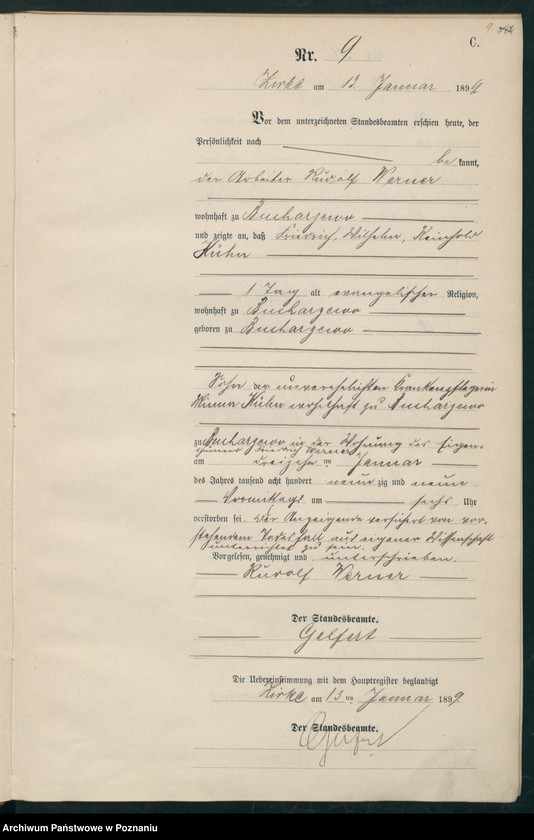 9.
C.
Nr. 9.
Zirke am 13. Januar 1899.
Vor dem unterzeichneten Standesbeamten erschien heute, der
Persönlichkeit nach
be kannt,
der Arbeiter Rudolf Werner
wohnhaft zu Bucharzewo
und zeigte an, daß Friedrich, Wilhelm, Reinhold
Kühn
1 Tag alt evangelischer Religion,
wohnhaft zu Bucharzewo
geboren zu Bucharzewo
Sohn der unverehelichten Krankenpflegerin
Minna Kühn wohnhaft zu Bucharzewo
zu Bucharzewo in der Wohnung des Eigen-
thümers Friedrich Werner
am dreizehn ten Januar
des Jahres tausend acht hundert neun zig und neun
Vormittags um sechs Uhr
verstorben sei. Der Anzeigende versichert von vor-
stehendem Todesfall aus eigener Wissenschaft
unterrichtet zu sein.
Vorgelesen, genehmigt und unterschrieben.
Rudolf Werner
Der Standesbeamte.
Gelfert
Die Uebereinstimmung mit dem Hauptregister beglaubigt
Zirke am 13 ten Januar 1899.
Der Standesbeamte.
Gelfert
Archiwum Państwowe w Poznaniu